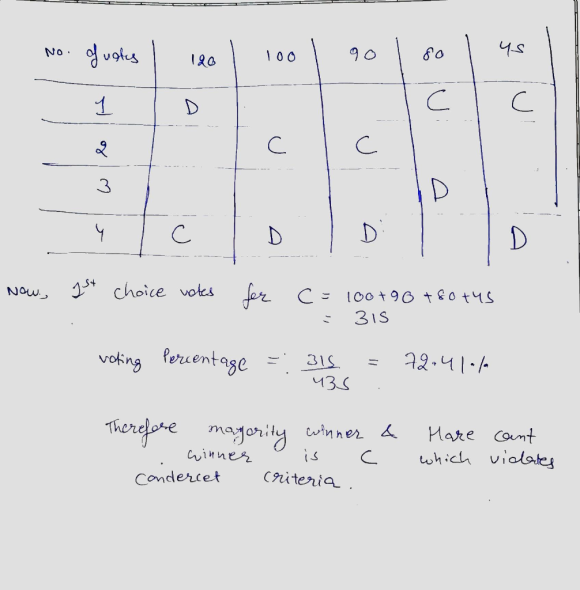 No. of votes 120 100 90 80 45
1 D C C
2 C C
3 D
4 C D D D
Now, 1st choice votes for C = 100+90+80+45
= 315
voting Percentage = 315/435 = 72.41%
Therefore mayority winner & Hare count
winner is C which violates
Condercet criteria.